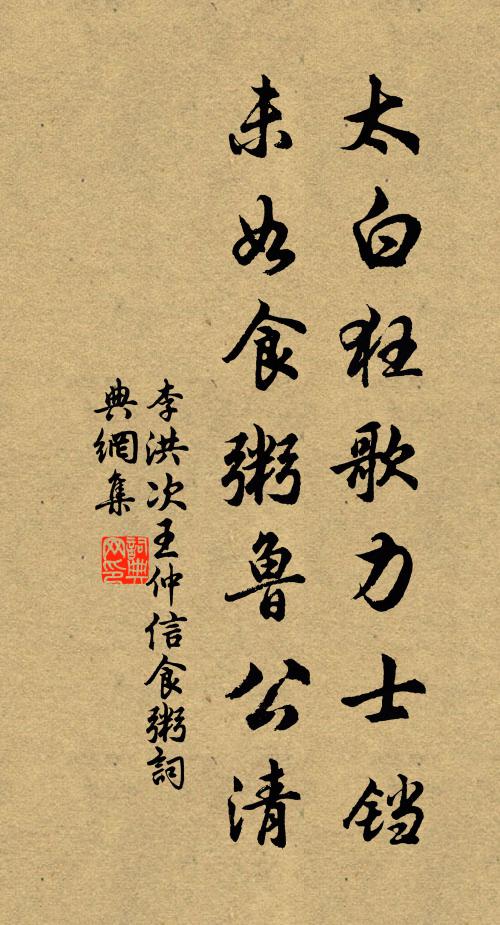 太白狂歌力士铛
未如食粥鲁公清
李洪次王仲信食粥詞
典網集
詞典網印